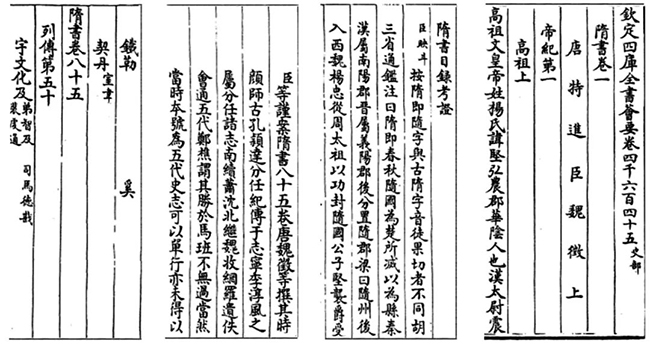 欽定四庫全書薈要卷四千六百四十五 史部
隋書卷一
唐特進臣魏徵上
帝紀第一
高祖上
高祖文皇帝姓楊氏諱堅弘農郡華陰人也漢太尉震
隋書目錄考證
臣映斗按隋即隨字與古隋字音徒果切者不同胡
三省通鑑注曰隋即春秋隨國為楚所滅以為縣秦
漢屬南陽郡晉屬義陽郡後分置隨郡梁曰隨州後
入西魏楊忠從周太祖以功封隨國公子堅襲爵受
臣等謹案隋書八十五卷唐魏徵等撰其時
顏師古孔穎達分任紀傳于志寧李淳風之
屬分任諸志南續蕭沈北繼魏收網羅遺佚
會通五代鄭樵謂其勝於馬班不無過當然
當時本號為五代史志可以單行亦未得以
鐵勒 奚
契丹 室韋
隋書卷八十五
列傳第五十
宇文化及 弟智及 司馬德戡 裴虔通